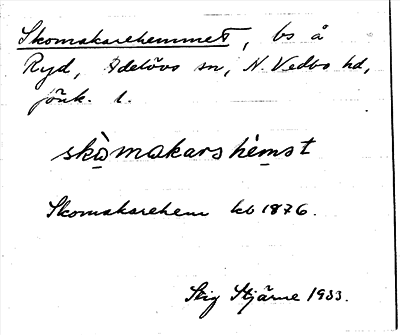 Skomakarehemmet, bs å
Ryd, Adelövs sn, N. Vedbo hd,
Jönk. l.
skòmakarshèmst
Skomakarehem kb 1876.
Stig Stjärne 1933.